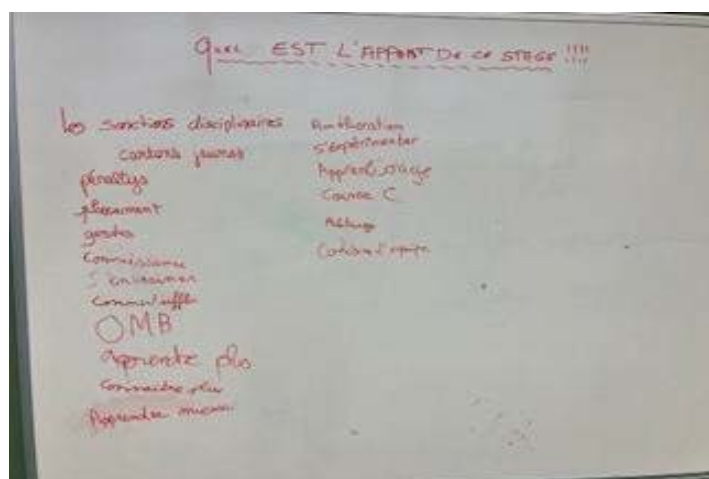 Quel EST L'APPORT De ce STAGE !!!!
Les sanctions disciplinaires
cartons jaunes
pénalitys
placement
gestes
Connaissance
S'entrainer
Comment siffle
OMB
Apprendre plus
Connaitre plus
Apprendre mieux
Amélioration
s'expérimenter
Apprentissage
Course C
Cohésion d'équipe